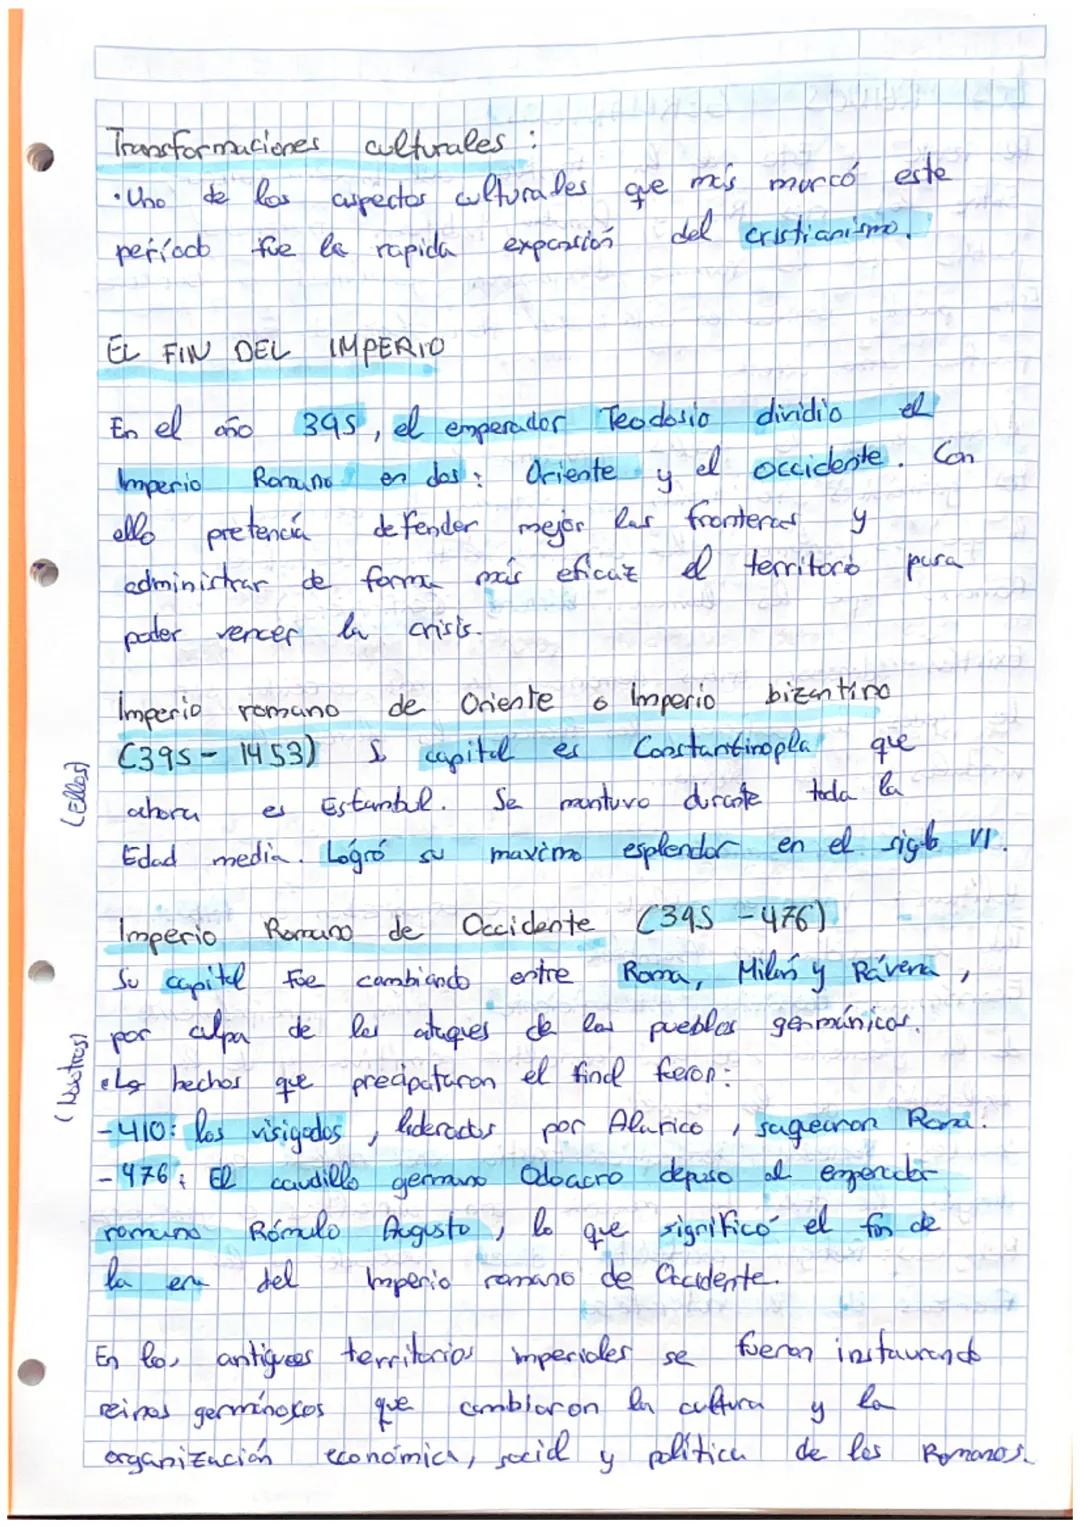 Transformaciones culturales :
· Uno de los aspectos culturales que más marcó este
período fue la rapida expansión del cristianismo.
EL FIN DEL IMPERIO
En el año 395, el emperador Teodosio dividio el
Imperio Romano en dos : Oriente y el occidente. Con
ello pretencía defender mejor las fronteras y
administrar de forma más eficaz el territorio para
poder vencer la crisis.
Imperio romano de Oriente o Imperio bizantino
(395 - 1453) S capital es Constantinopla que
ahora es Estambul. Se mantuvo durante toda la
(Ellos)
Edad media. Logró su maximo esplendor en el siglo VI.
Imperio Romano de Occidente (395 - 476)
Su capital fue cambiando entre Roma, Milán y Rávena ,
por culpa de los ataques de los pueblos germánicos.
(Nosotros)
· Los hechos que precipataron el final fueron:
- 410: los visigodos , liderados por Alarico , saquearon Roma.
- 476 : El caudillo germano Odoacro depuso al emperador
romano Rómulo Augusto , lo que significó el fin de
la era del Imperio romano de Occidente.
En los antiguos territorios imperiales se fueron instaurando
reinos germánicos que cambiaron la cultura y la
organización económica, social y política de los Romanos.